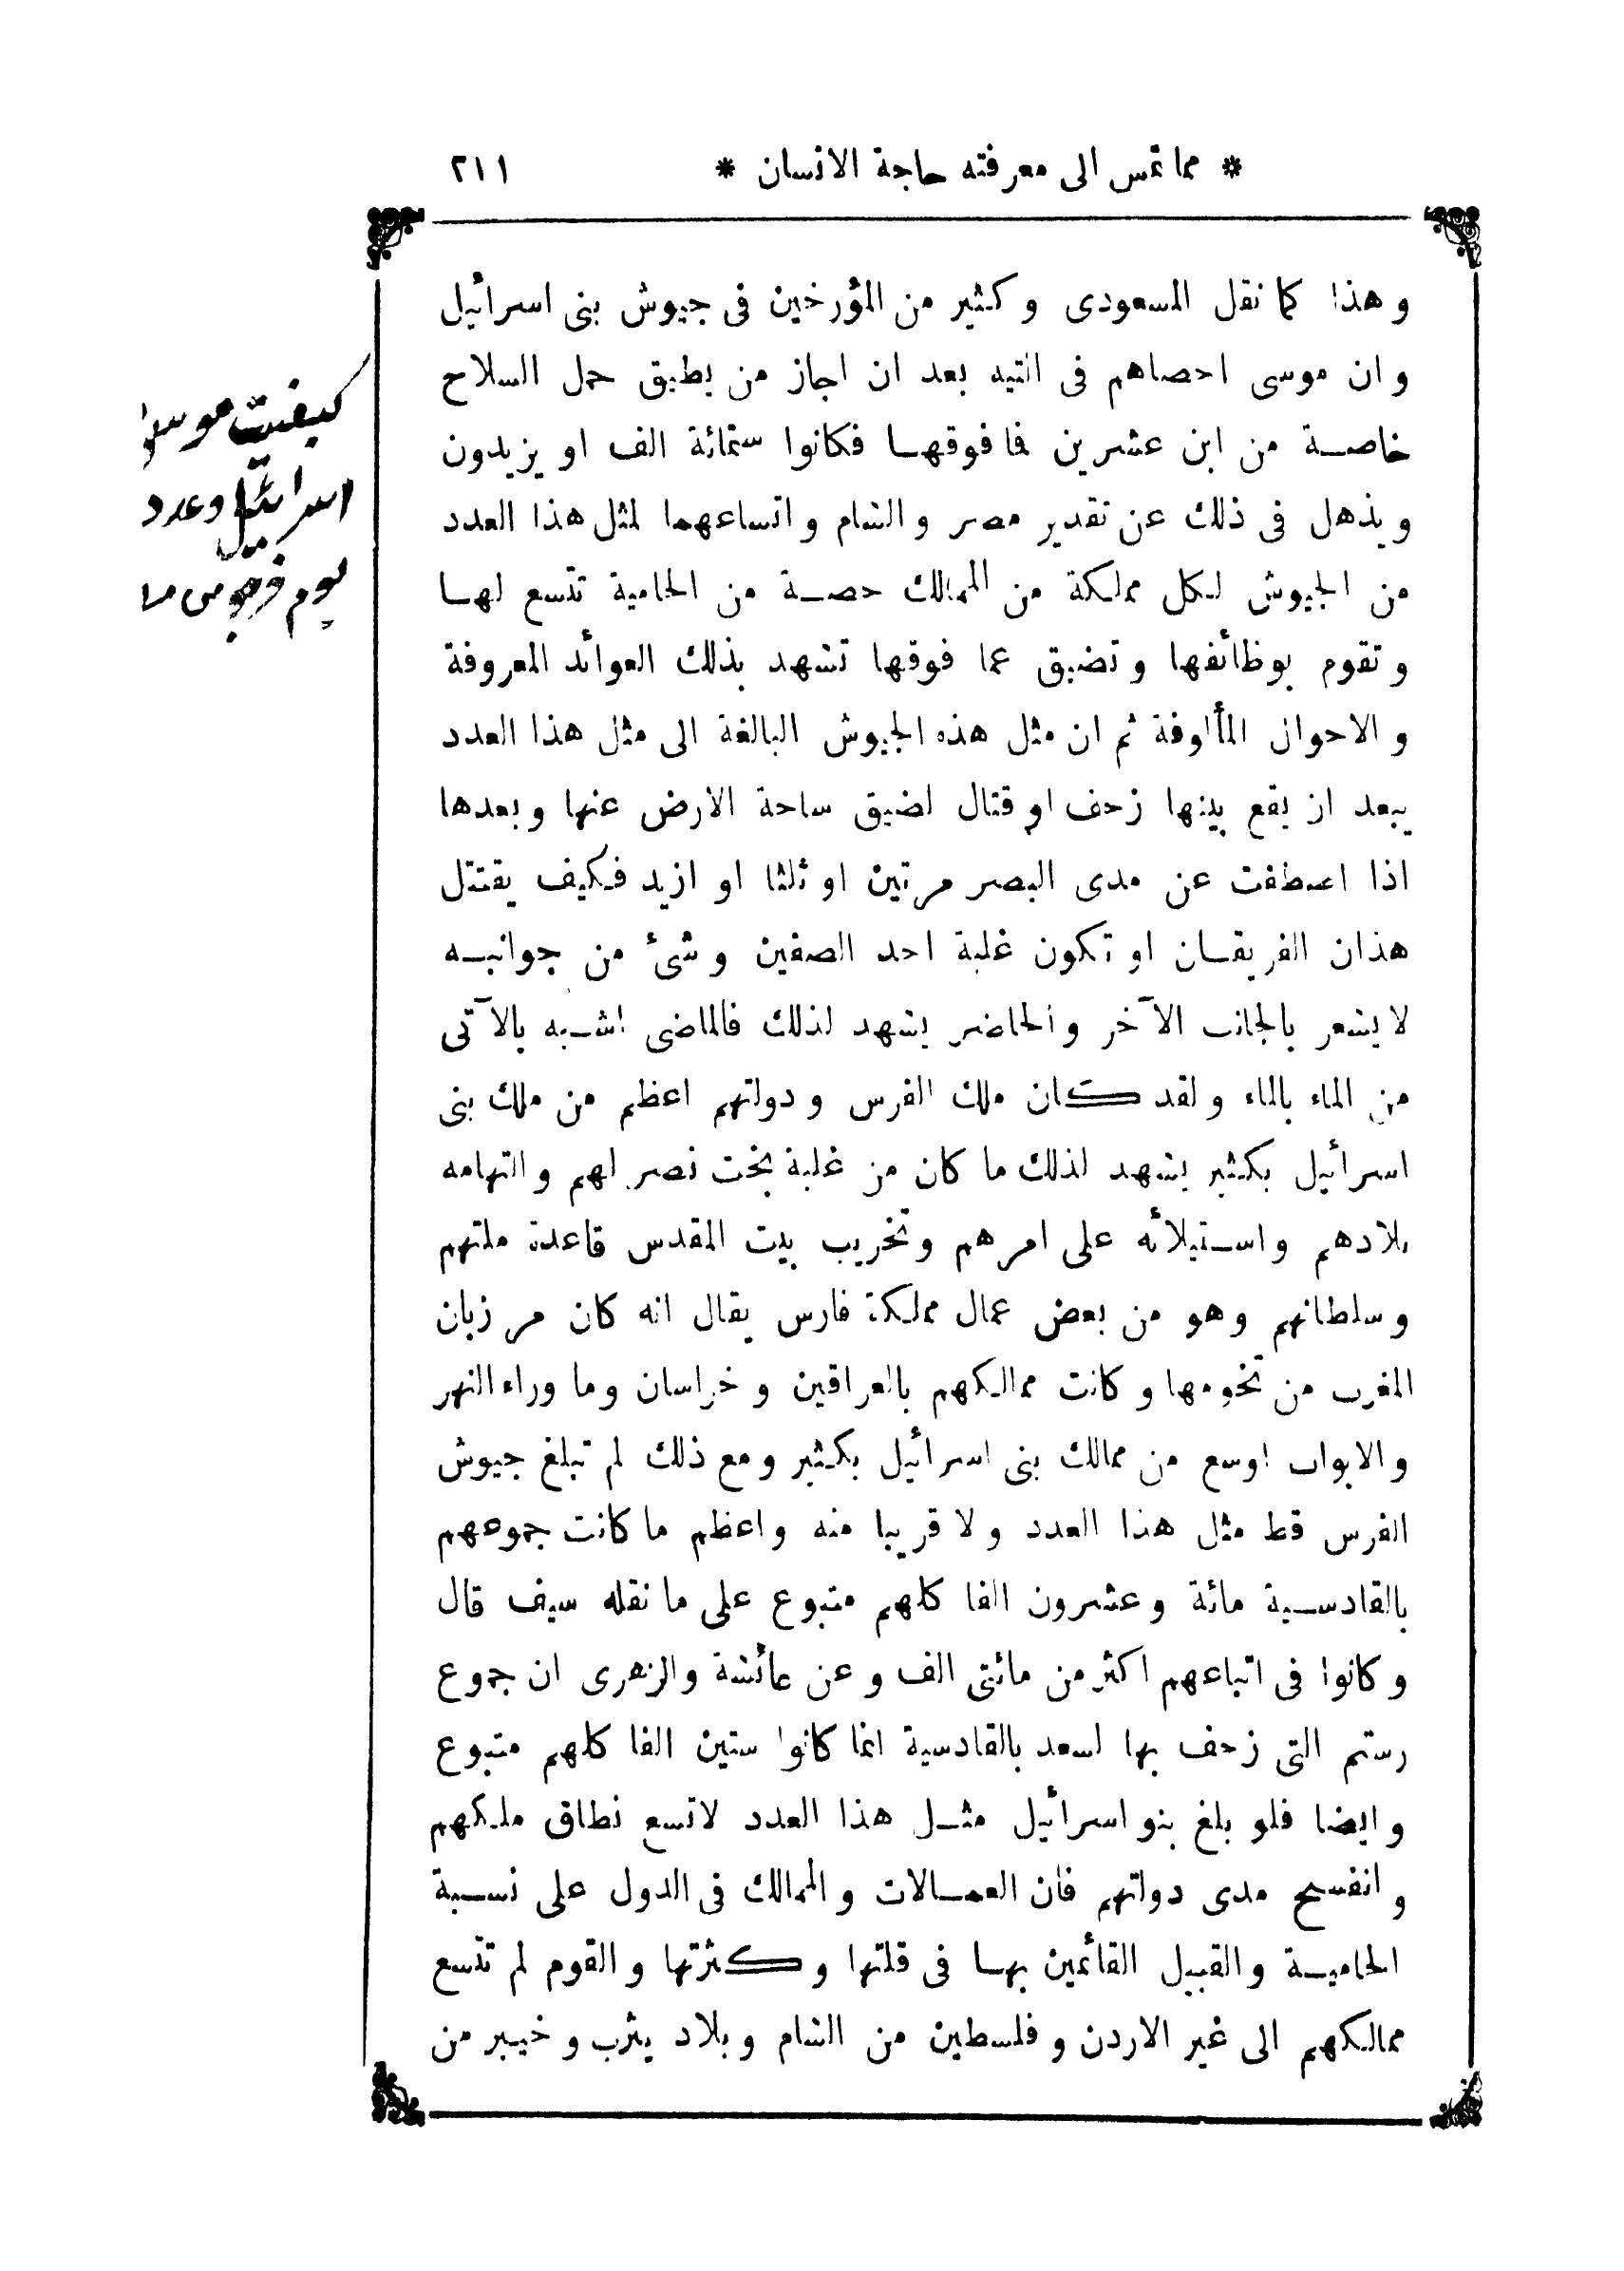 * مما تمس الى معرفته حاجة الانسان * ٢١١
وهذا كما نقل المسعودى وكثير من المؤرخين فى جيوش بنى اسرائيل
وان موسى احصاهم فى التيه بعد ان اجاز من يطيق حمل السلاح
خاصة من ابن عشرين فما فوقها فكانوا ستمائة الف او يزيدون
ويذهل فى ذلك عن تقدير مصر والشام واتساعهما لمثل هذا العدد
من الجيوش لكل مملكة من الممالك حصة من الحامية تتسع لها
وتقوم بوظائفها وتضيق عما فوقها تشهد بذلك العوائد المعروفة
والاحوال المألوفة ثم ان مثل هذه الجيوش البالغة الى مثل هذا العدد
يبعد ان يقع بينها زحف او قتال لضيق ساحة الارض عنها وبعدها
اذا اصطفت عن مدى البصر مرتين او ثلثا او ازيد فكيف يقتتل
هذان الفريقان او تكون غلبة احد الصفين وشئ من جوانبه
لا يشعر بالجانب الآخر والحاضر يشهد لذلك فالماضى اشبه بالآتى
من الماء بالماء ولقد كان ملك الفرس ودولتهم اعظم من ملك بنى
اسرائيل بكثير يشهد لذلك ما كان من غلبة بخت نصر لهم والتهامه
بلادهم واستيلائه على امرهم وتخريب بيت المقدس قاعدة ملتهم
وسلطانهم وهو من بعض عمال مملكة فارس يقال انه كان مرزبان
المغرب من تخومها وكانت ممالكهم بالعراقين وخراسان وما وراء النهر
والابواب اوسع من ممالك بنى اسرائيل بكثير ومع ذلك لم تبلغ جيوش
الفرس قط مثل هذا العدد ولا قريبا منه واعظم ما كانت جموعهم
بالقادسية مائة وعشرون الفا كلهم متبوع على ما نقله سيف قال
وكانوا فى اتباعهم اكثر من مائتى الف وعن عائشة والزهرى ان جموع
رستم التى زحف بها لسعد بالقادسية انما كانوا ستين الفا كلهم متبوع
وايضا فلو بلغ بنو اسرائيل مثل هذا العدد لاتسع نطاق ملكهم
وانفسح مدى دولتهم فان العمالات والممالك فى الدول على نسبة
الحامية والقبيل القائمين بها فى قلتها وكثرتها والقوم لم تتسع
ممالكهم الى غير الاردن وفلسطين من الشام وبلاد يثرب وخيبر من
كيفيت
وعدد